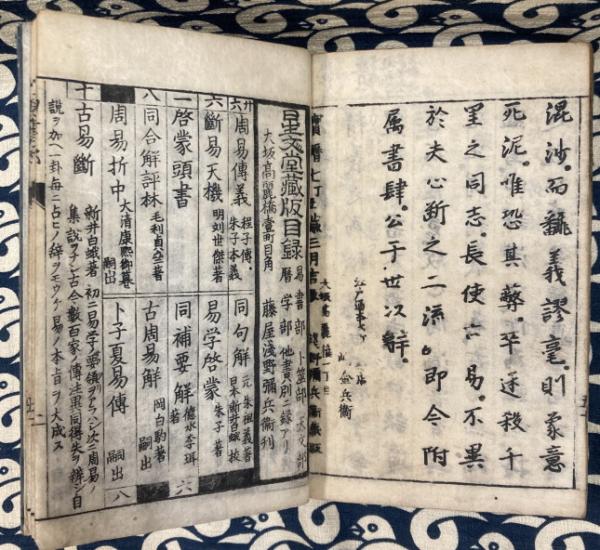 混沙。而飜義謬毫。則蒙意
死泥。唯恐其蔽。卒迷殺千
里之同志。長使六易。不異
於夫心斷之二流。即令附
属書肆。公于世次辭。
寶暦七丁丑歳三月吉
大坂高麗橋一丁目
淺野彌兵衞藏版
星文堂藏版目録
易書部 卜筮部 天文部
暦学部 他書別ニ録アリ
大坂高麗橋壹町目角 藤屋淺野彌兵衞刋
周易傳義 程子傳 朱子本義 六
同句解 元朱祖義著 日本新井白蛾校
斷易天機 明刘世傑著 六
易学啓蒙 朱子著
啓蒙頭書 一
同補要解 李珥著
同合解評林 毛利貞斎著 八
古周易解 岡白駒著 嗣出 六
周易折中 大清康熈御纂 嗣出
卜子夏易傳 嗣出 八
古易斷 新井白蛾著 十
初ニ易学ノ要領ヲアラハシ次ニ周易ノ
集説ヲ
古今数百家ノ傳注異同得失ヲ辨シ自
説ヲ加ヘ卦毎ニ占ヒノ辞ヲモウケ易ノ本旨ヲ大成ス